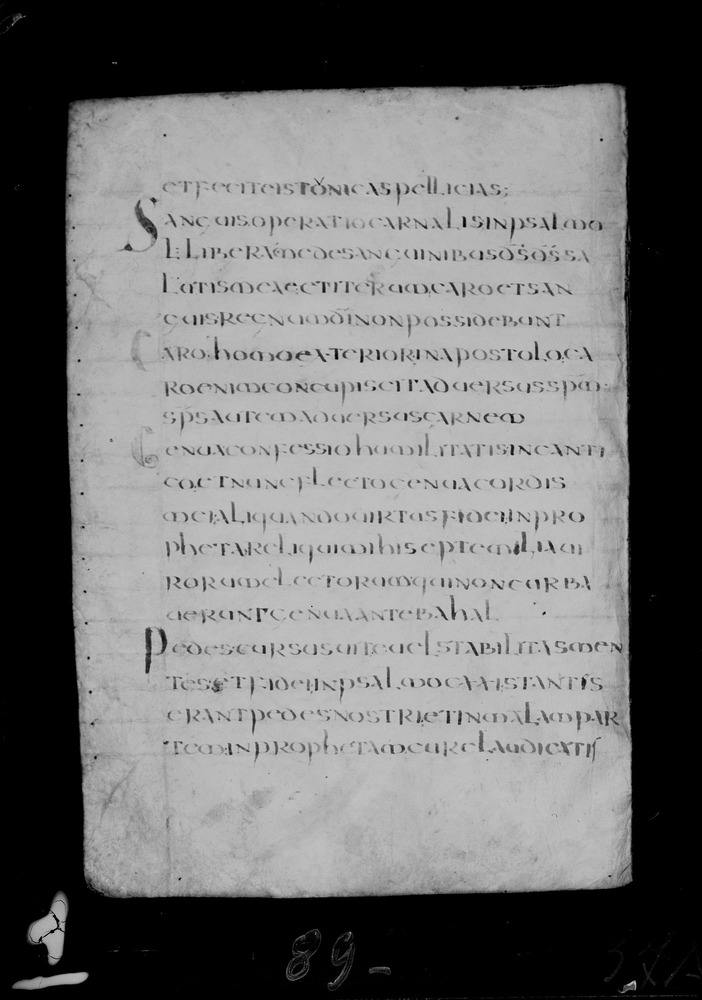 etfeciteistonicaspellicias;
Sanguisoperatiocarnalisinpsalmo
L. Liberamedesanguinibusdsdssa
lutismeaeetiterumcaroetsan
guisregnumdinonpossidebunt
Caro.homoexteriorinapostolo.ca
roenimconcupiscitadversusspm.
spsautemadversuscarnem
Genuaconfessiohumilitatisincanti
co.etnuncflectogenuacordis
meialiquandovirtusfideiinpro
phetareliquimihiseptemmiliavi
rorumelectorumquinoncurba
veruntgenuaantebahal
Pedescursusvitaevelstabilitasmen
tesetfideiinpsalmocxxistantis
erantpedesnostrietinmalampar
teminprophetamecureclaudicatis
89-